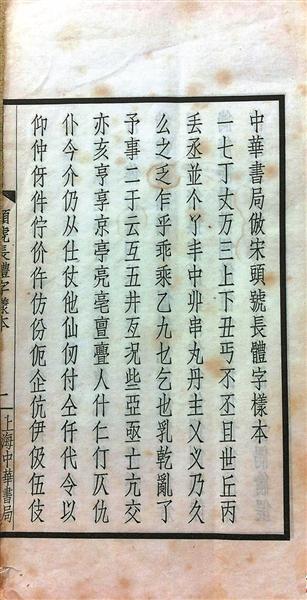 中華書局倣宋頭號長體字樣本
一七丁丈万三上下丑丐不丕且世丘丙
丢丞並个丫丰中丱串丸丹主乂乂乃久
么之乏乍乎乖乘乙九乜乞也乳乾亂了
予事二于云互五井亙况些亞亟亡亢交
亦亥亨享京亭亮亳亶亹人什仁仃仄仇
仆今介仍从仕仗他仙仞付仝仟代令以
仰仲仔件佇价仵仿份伌企伉伊伋伍伎
頭號長體字樣本
二
上海中華書局